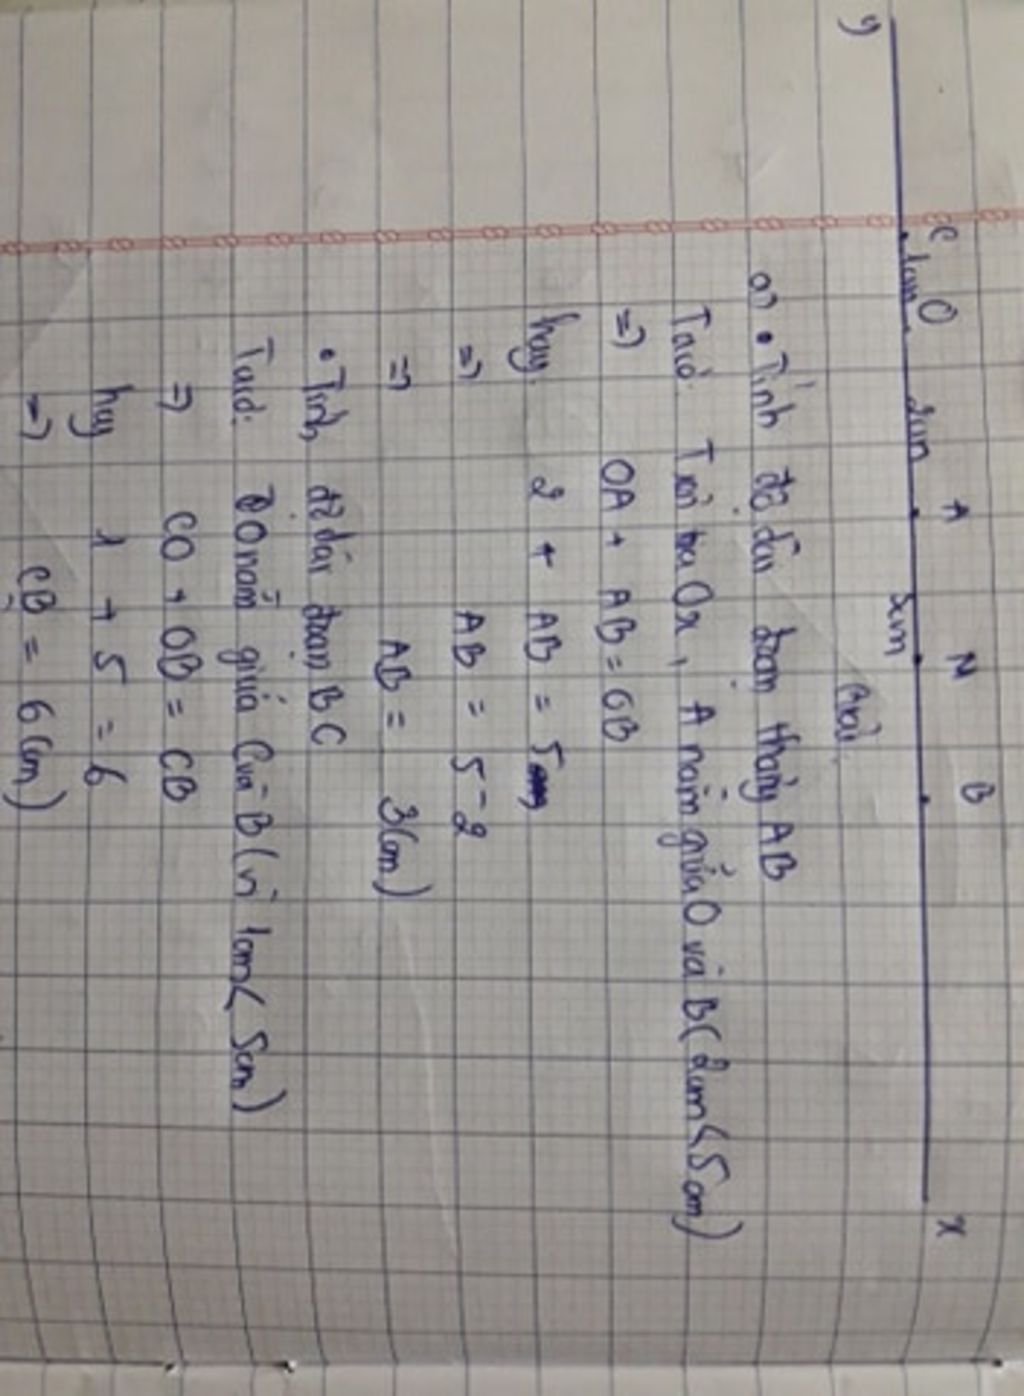 y C O A N B x
1cm 2cm 5cm
Giải
a) • Tính độ dài đoạn thẳng AB
Ta có: Trên tia Ox, A nằm giữa O và B (2cm < 5cm)
=) OA + AB = OB
hay 2 + AB = 5
=) AB = 5 - 2
=) AB = 3(cm)
• Tính độ dài đoạn BC
Ta có: O nằm giữa C và B (vì 1cm < 5cm)
=) CO + OB = CB
hay 1 + 5 = 6
=) CB = 6 (cm)